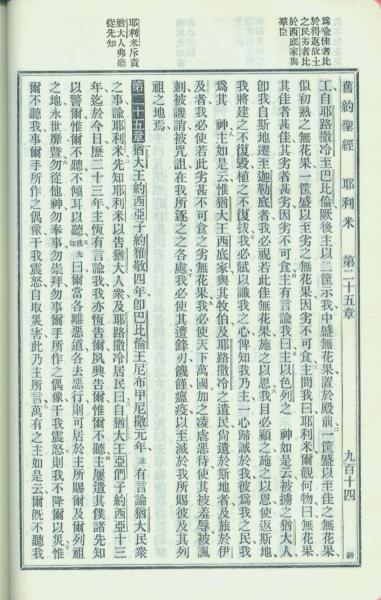 舊約聖經 耶利米 第二十五章 九百十四
為喻佳者比
於得返故土
之民劣者比
於西底家與
羣臣
工自耶路撒冷至巴比倫厥後主以二筐示我中盛無花果置於殿前一筐盛以至佳之無花果
似初熟之無花果一筐盛以至劣之無花果因劣不可食主問我曰耶利米爾觀何物曰無花果
其佳者甚佳其劣者甚劣因劣不可食主有言諭我曰主以色列之 神如是云被擄之猶大人
卽我自斯地遷至迦勒底者我必視若此佳無花果施之以恩我目必顧之施之以恩使返斯地
我將建之不復毀植之不復拔我必賦以識我之心俾知我乃主一心歸誠於我彼爲我之民我
爲其 神主如是云惟猶大王西底家與其牧伯及耶路撒冷之遺民尚遺於斯地者及旅於伊
及者我必使若此劣甚不可食之劣無花果我必使天下萬國加之凌虐惡待使其被羞辱被諷
刺被譏誚被咒詛在我所逐之之各處我必使其遭鋒刃饑饉瘟疫以至滅於我所賜彼及其列
祖之地焉
耶利米斥責
猶大人弗聽
從先知
第二十五章 猶大王約西亞子約雅敬四年卽巴比倫王尼布甲尼撒元年主有言諭猶大民衆
之事諭耶利米先知耶利米以告猶大人衆及耶路撒冷居民曰自猶大王亞們子約西亞十三
年迄於今日歷二十三年主恆有言諭我我亦恆告爾夙興告爾惟爾不聽主屢遣其僕諸先知
以警爾惟爾不聽不傾耳以聽彼先知曰爾當各離惡道各去惡行則可居於主所賜爾及爾列祖
之地永世靡曁勿從他神勿奉事勿崇拜勿事爾手所作之偶像干我震怒則我不降爾以災惟
爾不聽我事爾手所作之偶像干我震怒自取災害此乃主所言萬有之主如是云爾旣不聽我